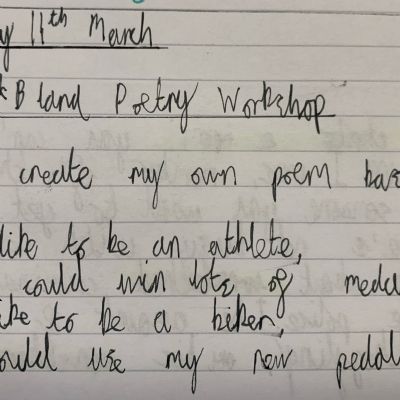 y 11th March
k B land Poetry Workshop
create my own poem bas
like to be an athlete,
could win lots of meda
ike to be a biker,
ould use my new pedal